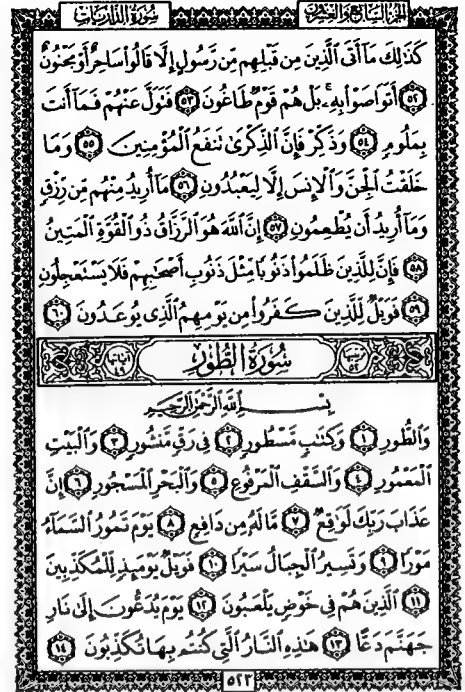 الجزء السابع والعشرون
سورة الذاريات
كَذَٰلِكَ مَآ أَتَى ٱلَّذِينَ مِن قَبْلِهِم مِّن رَّسُولٍ إِلَّا قَالُوا۟ سَاحِرٌ أَوْ مَجْنُونٌ
٥٢ أَتَوَاصَوْا۟ بِهِۦ ۚ بَلْ هُمْ قَوْمٌ طَاغُونَ ٥٣ فَتَوَلَّ عَنْهُمْ فَمَآ أَنتَ
بِمَلُومٍ ٥٤ وَذَكِّرْ فَإِنَّ ٱلذِّكْرَىٰ تَنفَعُ ٱلْمُؤْمِنِينَ ٥٥ وَمَا
خَلَقْتُ ٱلْجِنَّ وَٱلْإِنسَ إِلَّا لِيَعْبُدُونِ ٥٦ مَآ أُرِيدُ مِنْهُم مِّن رِّزْقٍ
وَمَآ أُرِيدُ أَن يُطْعِمُونِ ٥٧ إِنَّ ٱللَّهَ هُوَ ٱلرَّزَّاقُ ذُو ٱلْقُوَّةِ ٱلْمَتِينُ
٥٨ فَإِنَّ لِلَّذِينَ ظَلَمُوا۟ ذَنُوبًا مِّثْلَ ذَنُوبِ أَصْحَٰبِهِمْ فَلَا يَسْتَعْجِلُونِ
٥٩ فَوَيْلٌ لِّلَّذِينَ كَفَرُوا۟ مِن يَوْمِهِمُ ٱلَّذِى يُوعَدُونَ ٦٠
ترتيبها ٥٢ سُورَةُ الطُّورِ آياتها ٤٩
بِسْمِ ٱللَّهِ ٱلرَّحْمَٰنِ ٱلرَّحِيمِ
وَٱلطُّورِ ١ وَكِتَٰبٍ مَّسْطُورٍ ٢ فِى رَقٍّ مَّنشُورٍ ٣ وَٱلْبَيْتِ
ٱلْمَعْمُورِ ٤ وَٱلسَّقْفِ ٱلْمَرْفُوعِ ٥ وَٱلْبَحْرِ ٱلْمَسْجُورِ ٦ إِنَّ
عَذَابَ رَبِّكَ لَوَٰقِعٌ ٧ مَّا لَهُۥ مِن دَافِعٍ ٨ يَوْمَ تَمُورُ ٱلسَّمَآءُ
مَوْرًا ٩ وَتَسِيرُ ٱلْجِبَالُ سَيْرًا ١٠ فَوَيْلٌ يَوْمَئِذٍ لِّلْمُكَذِّبِينَ
١١ ٱلَّذِينَ هُمْ فِى خَوْضٍ يَلْعَبُونَ ١٢ يَوْمَ يُدَعُّونَ إِلَىٰ نَارِ
جَهَنَّمَ دَعًّا ١٣ هَٰذِهِ ٱلنَّارُ ٱلَّتِى كُنتُم بِهَا تُكَذِّبُونَ ١٤
٥٢٣